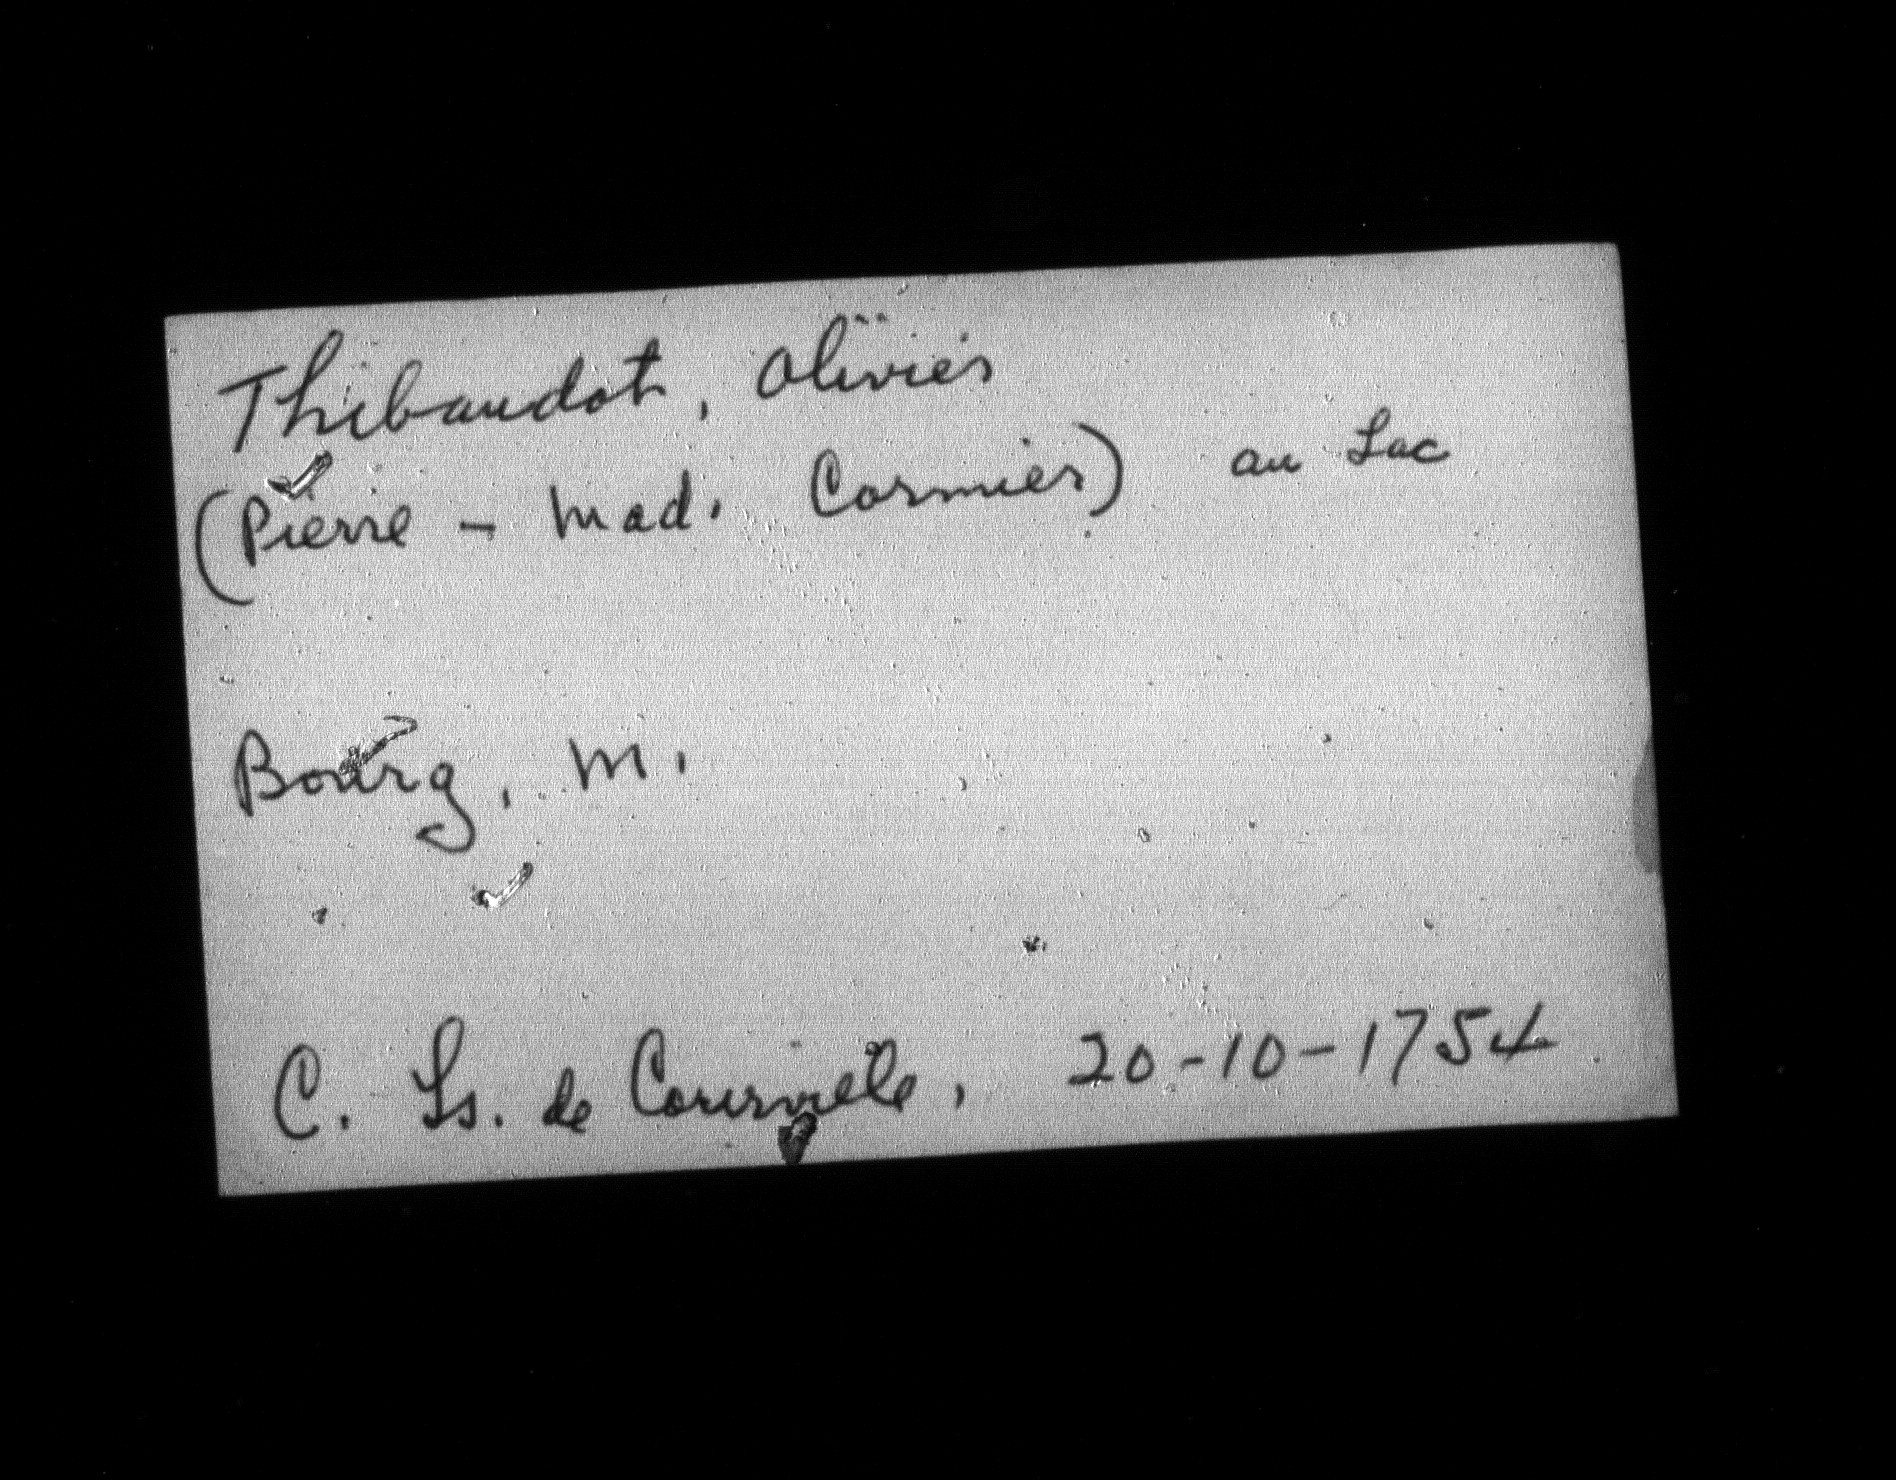 Thibaudot, Olivier
(Pierre - Mad. Cormier) au Lac
Bourg, M.
C. Ls. de Courville, 20-10-1754